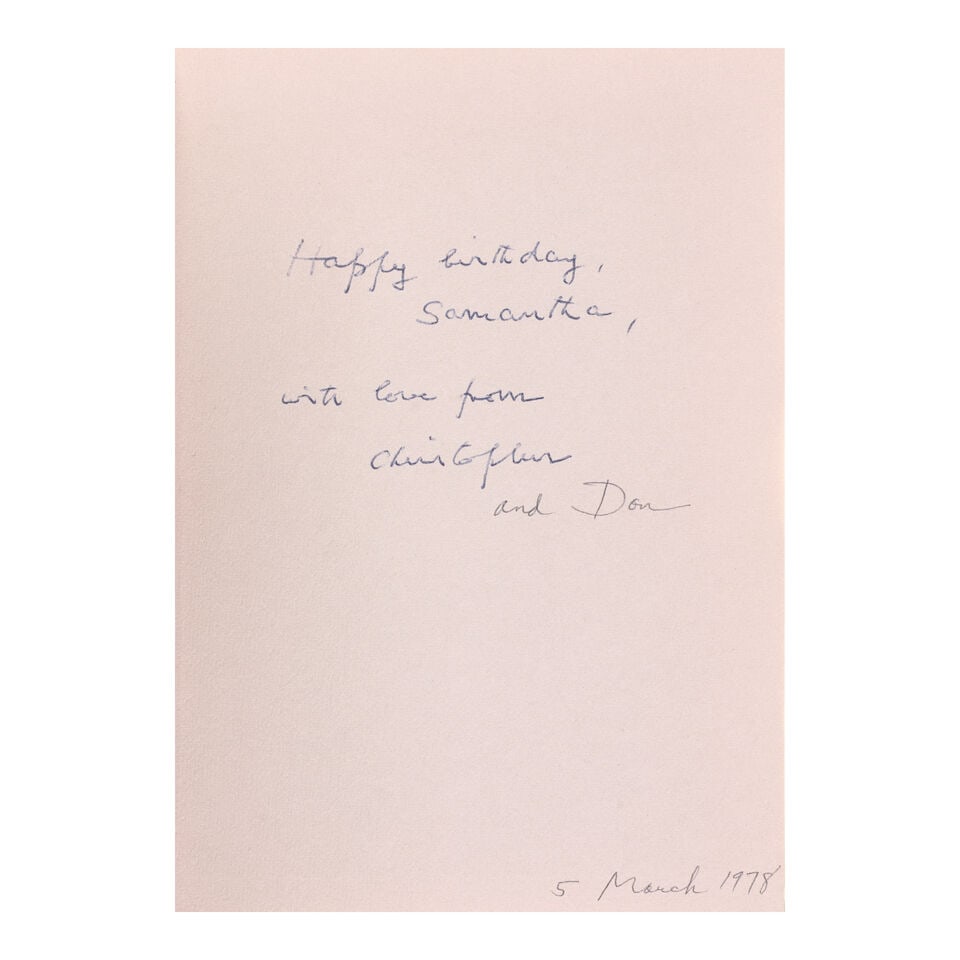 Happy birthday,
Samantha,
with love from
Christopher
and Don
5 March 1978